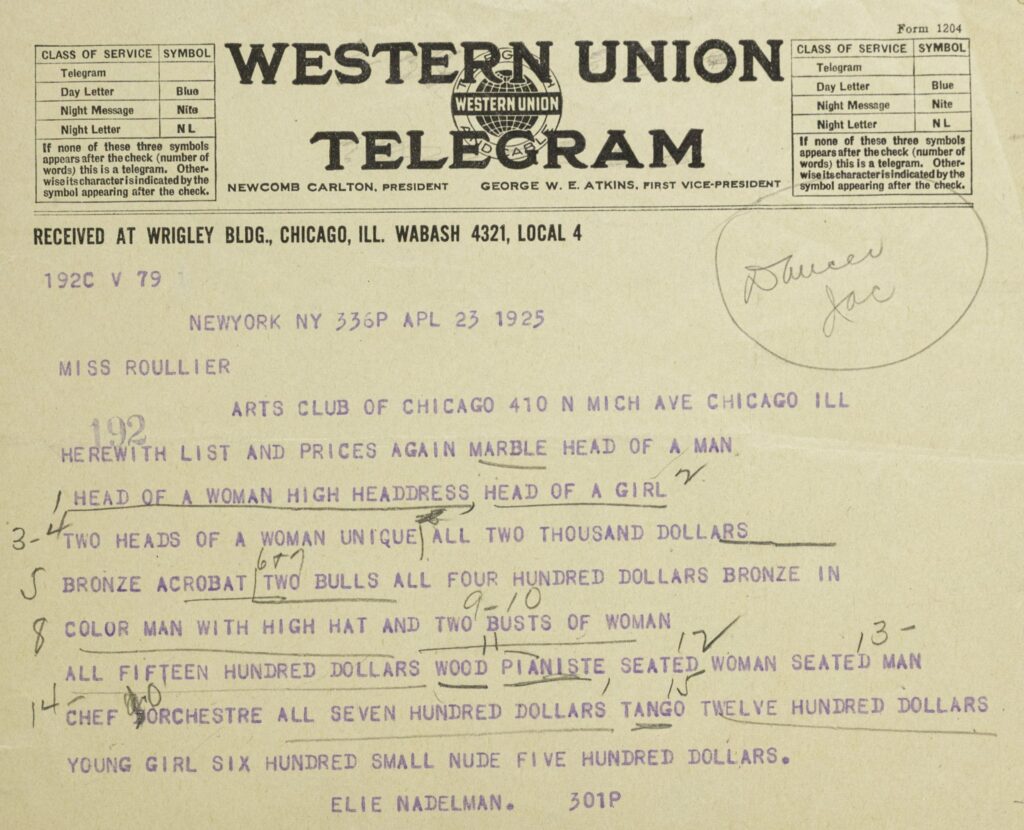 Form 1204
CLASS OF SERVICE SYMBOL
Telegram
Day Letter Blue
Night Message Nite
Night Letter N L
If none of these three symbols
appears after the check (number of
words) this is a telegram. Other-
wise its character is indicated by the
symbol appearing after the check.
WESTERN UNION
WESTERN UNION
TELEGRAM
NEWCOMB CARLTON, PRESIDENT GEORGE W. E. ATKINS, FIRST VICE-PRESIDENT
CLASS OF SERVICE SYMBOL
Telegram
Day Letter Blue
Night Message Nite
Night Letter N L
If none of these three symbols
appears after the check (number of
words) this is a telegram. Other-
wise its character is indicated by the
symbol appearing after the check.
RECEIVED AT WRIGLEY BLDG., CHICAGO, ILL. WABASH 4321, LOCAL 4
Dancer
Jac
192C V 79
NEWYORK NY 336P APL 23 1925
MISS ROULLIER
ARTS CLUB OF CHICAGO 410 N MICH AVE CHICAGO ILL
192
HEREWITH LIST AND PRICES AGAIN MARBLE HEAD OF A MAN
1 HEAD OF A WOMAN HIGH HEADDRESS, HEAD OF A GIRL 2
3-4 TWO HEADS OF A WOMAN UNIQUE ALL TWO THOUSAND DOLLARS
6+7
5 BRONZE ACROBAT TWO BULLS ALL FOUR HUNDRED DOLLARS BRONZE IN
9-10
8 COLOR MAN WITH HIGH HAT AND TWO BUSTS OF WOMAN
11 12 13-
ALL FIFTEEN HUNDRED DOLLARS WOOD PIANISTE, SEATED WOMAN SEATED MAN
15
14- CHEF D'ORCHESTRE ALL SEVEN HUNDRED DOLLARS TANGO TWELVE HUNDRED DOLLARS
YOUNG GIRL SIX HUNDRED SMALL NUDE FIVE HUNDRED DOLLARS.
ELIE NADELMAN. 301P